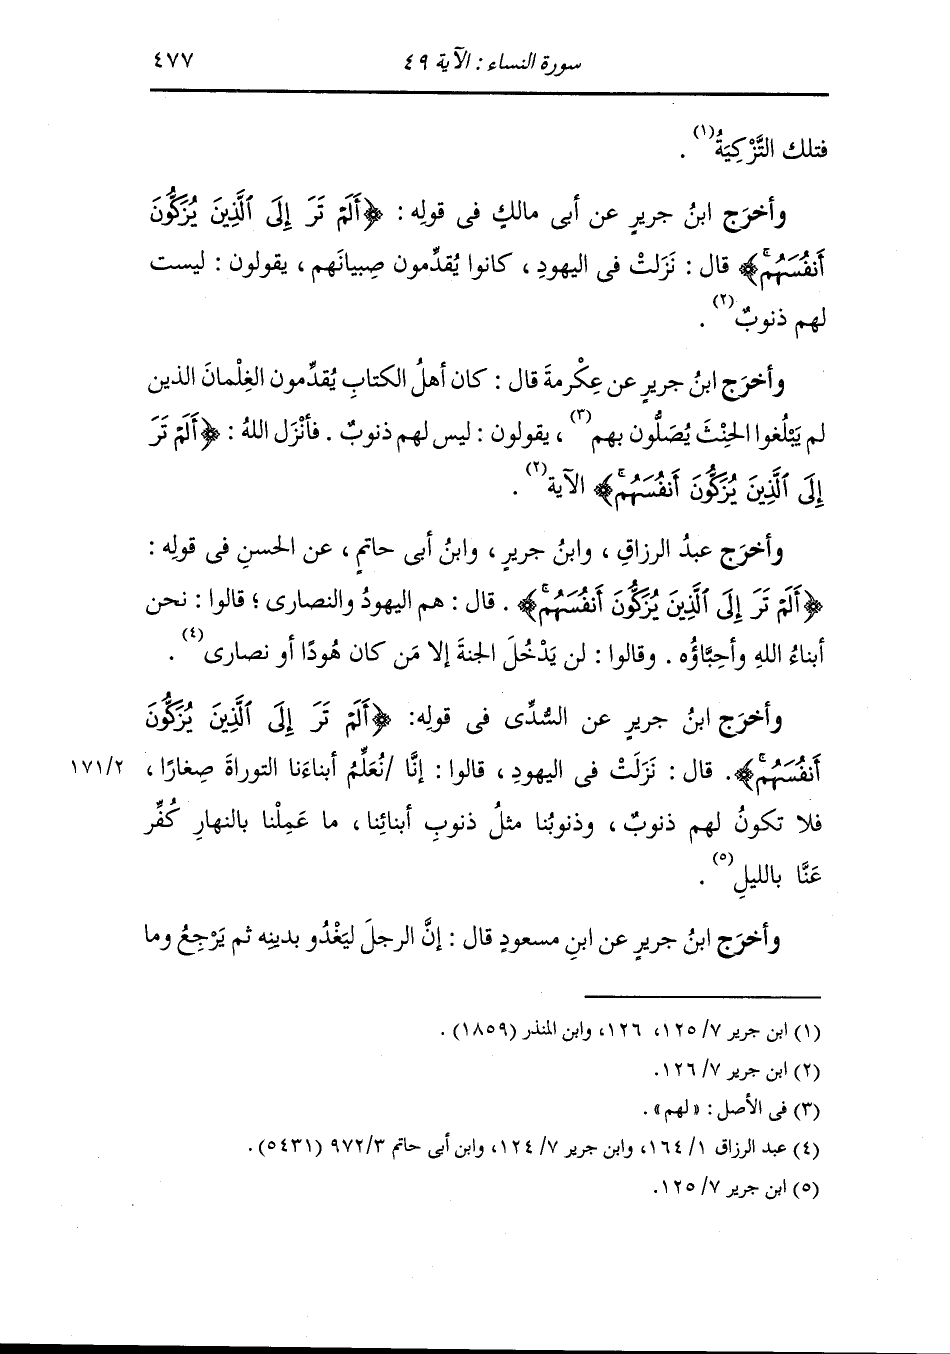 سورة النساء : الآية ٤٩
٤٧٧
فتلك التَّزْكِيَةُ(١) .
وأخرَج ابنُ جريرٍ عن أبى مالكٍ فى قولِه : ﴿أَلَمْ تَرَ إِلَى ٱلَّذِينَ يُزَكُّونَ
أَنفُسَهُمْۚ﴾ قال : نَزَلتْ فى اليهودِ ، كانوا يُقدِّمون صِبيانَهم ، يقولون : ليست
لهم ذنوبٌ(٢) .
وأخرَج ابنُ جريرٍ عن عِكْرمةَ قال : كان أهلُ الكتابِ يُقدِّمون الغِلْمانَ الذين
لم يَبْلُغوا الحِنْثَ يُصَلُّون بهم(٣) ، يقولون : ليس لهم ذنوبٌ . فأنْزَل اللهُ : ﴿أَلَمْ تَرَ
إِلَى ٱلَّذِينَ يُزَكُّونَ أَنفُسَهُمْۚ﴾ الآية(٢) .
وأخرَج عبدُ الرزاقِ ، وابنُ جريرٍ ، وابنُ أبى حاتمٍ ، عن الحسنِ فى قولِه :
﴿أَلَمْ تَرَ إِلَى ٱلَّذِينَ يُزَكُّونَ أَنفُسَهُمْۚ﴾ . قال : هم اليهودُ والنصارى ؛ قالوا : نحن
أبناءُ اللهِ وأحِبَّاؤُه . وقالوا : لن يَدْخُلَ الجنةَ إلا مَن كان هُودًا أو نصارى(٤) .
وأخرَج ابنُ جريرٍ عن السُّدِّى فى قولِه: ﴿أَلَمْ تَرَ إِلَى ٱلَّذِينَ يُزَكُّونَ
أَنفُسَهُمْۚ﴾. قال : نَزَلَتْ فى اليهودِ ، قالوا : إنَّا /نُعَلِّمُ أبناءَنا التوراةَ صِغارًا ، ١٧١/٢
فلا تكونُ لهم ذنوبٌ ، وذنوبُنا مثلُ ذنوبِ أبنائِنا ، ما عَمِلْنا بالنهارِ كُفِّر
عَنَّا بالليلِ(٥) .
وأخرَج ابنُ جريرٍ عن ابنِ مسعودٍ قال : إنَّ الرجلَ ليَغْدُو بدينِه ثم يَرْجِعُ وما
(١) ابن جرير ٧/ ١٢٥، ١٢٦، وابن المنذر (١٨٥٩) .
(٢) ابن جرير ٧/ ١٢٦.
(٣) فى الأصل : «لهم» .
(٤) عبد الرزاق ١/ ١٦٤، وابن جرير ٧/ ١٢٤، وابن أبى حاتم ٩٧٢/٣ (٥٤٣١) .
(٥) ابن جرير ٧/ ١٢٥.